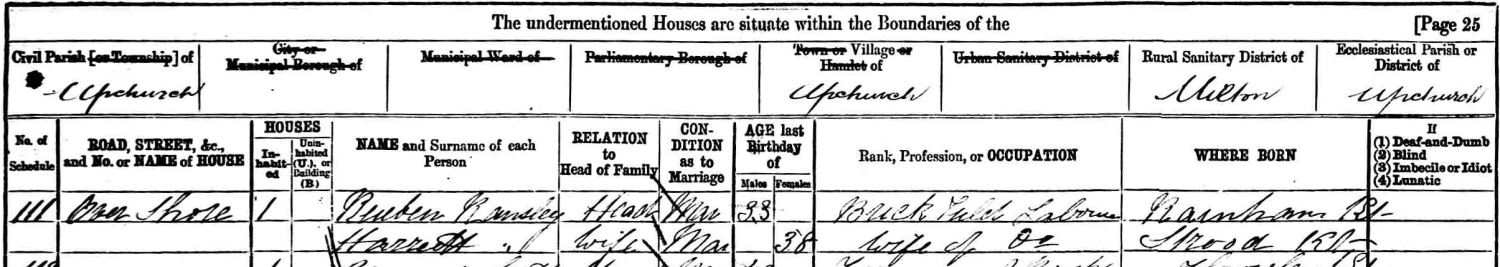 The undermentioned Houses are situate within the Boundaries of the [Page 25
Civil Parish [or Township] of City or Municipal Borough of Municipal Ward of Parliamentary Borough of Town or Village or Hamlet of Urban Sanitary District of Rural Sanitary District of Ecclesiastical Parish or District of
Upchurch Upchurch Milton Upchurch
No. of Schedule ROAD, STREET, &c., and No. or NAME of HOUSE HOUSES Inhabited Uninhabited (U.), or Building (B.) NAME and Surname of each Person RELATION to Head of Family CONDITION as to Marriage AGE last Birthday of Males Females Rank, Profession, or OCCUPATION WHERE BORN If (1) Deaf-and-Dumb (2) Blind (3) Imbecile or Idiot (4) Lunatic
111 Over Shore 1 Reuben Ransley Head Mar 33 Brick Field Rainham Kt
Harriett " Wife Mar 38 Wife of Do Strood Kt